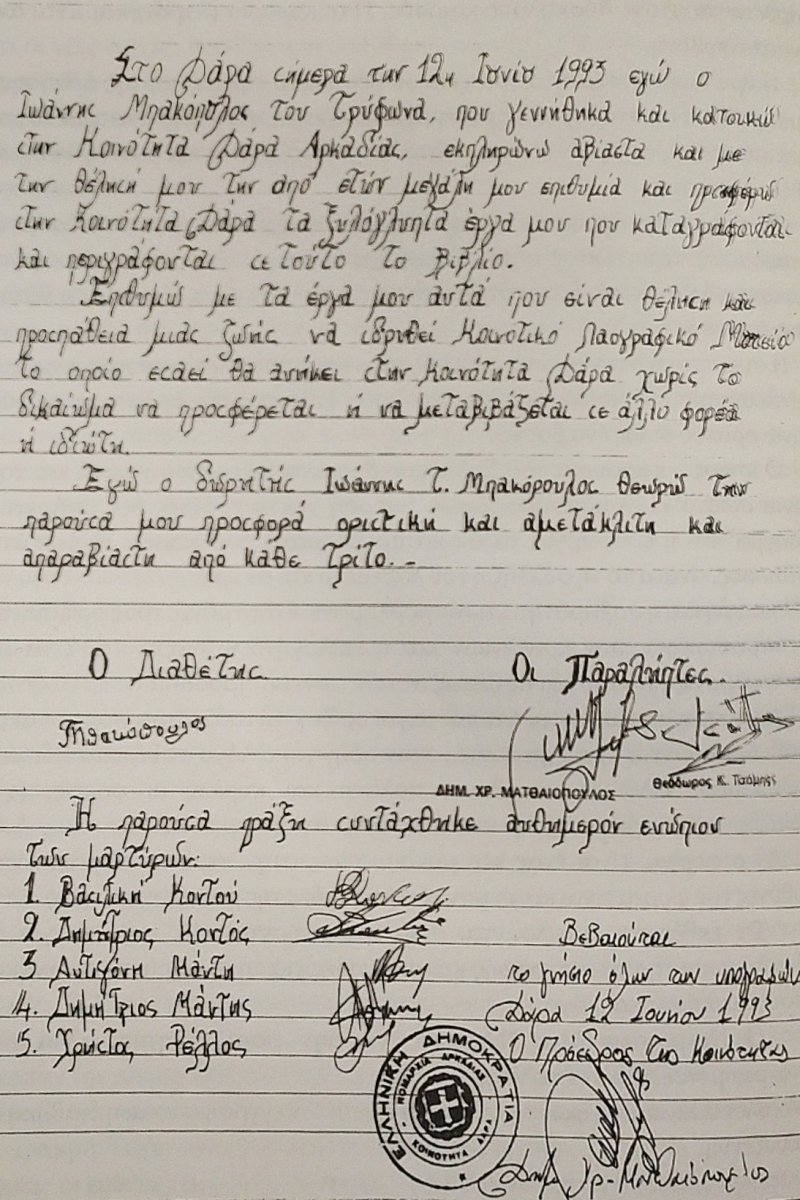 Στο Δάρα σήμερα την 12η Ιουνίο 1993 εγώ ο
Ιωάννης Μπακόπουλος του Τρύφωνα, που γεννήθηκα και κατοικώ
στην Κοινότητα Δάρα Αρκαδίας, εκπληρώνω αβίαστα και με
την θέλησή μου την από ετών μεγάλη μου επιθυμία και προσφέρω
στην Κοινότητα Δάρα τα ξυλόγλυπτα έργα μου που καταγράφονται
και περιγράφονται σε τούτο το Βιβλίο.
Επιθυμώ με τα έργα μου αυτά που είναι θέληση και
προσπάθεια μιας ζωής να ιδρυθεί Κοινοτικό Λαογραφικό Μουσείο
το οποίο εσαεί θα ανήκει στην Κοινότητα Δάρα χωρίς το
δικαίωμα να προσφέρεται ή να μεταβιβάζεται σε άλλο φορέα
ή ιδιώτη.
Εγώ ο δωρητής Ιωάννης Τ. Μπακόρουλος θεωρώ την
παρούσα μου προσφορά οριστική και αμετάκλιτη και
απαραβίαστη από κάθε τρίτο.-
Ο Διαθέτης. Οι Παραλήπτες.
Μπακόπουλος
ΔΗΜ. ΧΡ. ΜΑΤΘΑΙΟΠΟΥΛΟΣ Θεόδωρος Κ. Τσώμης
Η παρούσα πράξη συντάχθηκε αυθημερόν ενώπιον
των μαρτύρων:
1. Βασιλική Κοντού
2. Δημήτριος Κοντός Βεβαιούται
3 Αντιγόνη Μάντη το γνήσιο όλων των υπογραφών
4. Δημήτριος Μάντης Δάρα 12 Ιουνίου 1993
5. Χρήστος Ρέλλος Ο Πρόεδρος της Κοινότητας
ΕΛΛΗΝΙΚΗ ΔΗΜΟΚΡΑΤΙΑ
ΝΟΜΑΡΧΙΑ ΑΡΚΑΔΙΑΣ
ΚΟΙΝΟΤΗΤΑ ΔΑΡΑ
Δημ Χρ- Ματθαιόπουλος